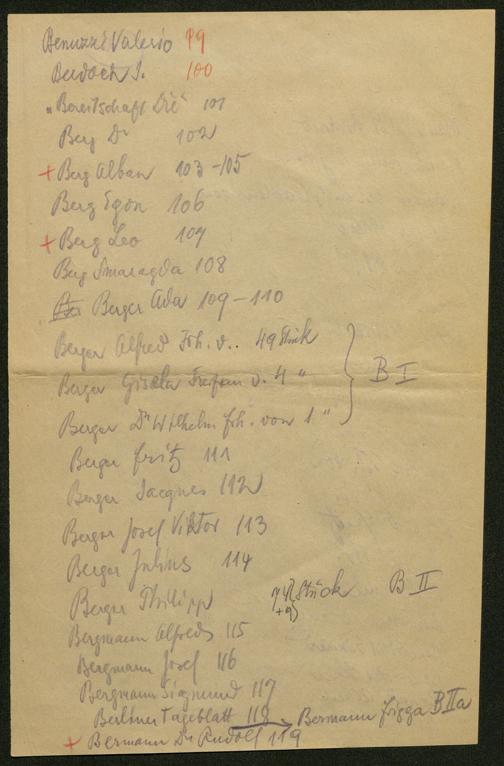 Benuzzi Valerio 99
Berdach J. 100
"Bereitschaft Die" 101
Berg Dr 102
+ Berg Alban 103-105
Berg Egon 106
+ Berg Leo 107
Berg Smaragda 108
Berger Ada 109-110
Berger Alfred Frh. v.. 49 Stück
Berger Gisela Freifrau v. 4 " B I
Berger Dr Wilhelm Frh. von 1 "
Berger Fritz 111
Berger Jacques 112
Berger Josef Viktor 113
Berger Julius 114
Berger Philipp Stück B II
Bergmann Alfred 115
Bergmann Josef 116
Bergmann Sigmund 117
Berliner Tageblatt 118 Bermann B IIa
+ Bermann Dr Rudolf 119